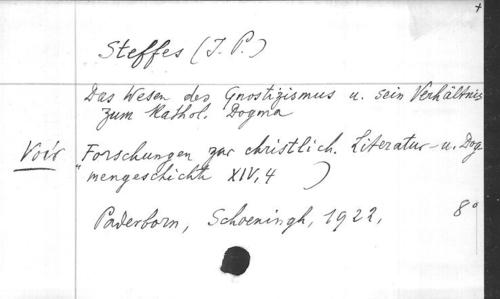 Steffes (J. P.)
Das Wesen des Gnostizismus u. sein Verhältnis
zum Kathol. Dogma
Voir Forschungen zur christlich. Literatur- u. Dog
"mengeschichte XIV, 4 )
Paderborn, Schoeningh, 1922, 8°